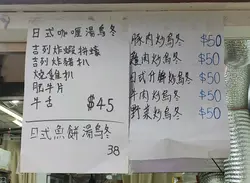 日式咖喱湯烏冬
吉列炸蝦拼蠔
吉列炸豬扒
燒雞扒
肥牛片
牛舌 $45
日式魚餅湯烏冬
38
豚肉炒烏冬 $50
雞肉炒烏冬 $50
日式什錦炒烏冬 $50
牛肉炒烏冬 $50
野菜炒烏冬 $50